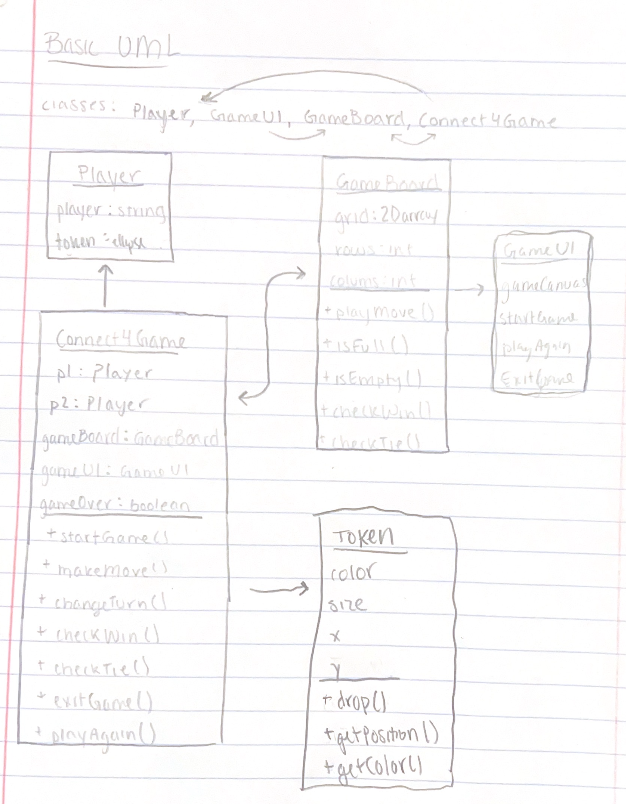 Basic UML
classes: Player, GameUI, GameBoard, Connect4Game
Player
player: string
token: ellipse
GameBoard
grid: 2Darray
rows: int
colums: int
+ playMove()
+ isFull()
+ isEmpty()
+ checkWin()
+ checkTie()
GameUI
gameCanvas
startGame
playAgain
ExitGame
Connect4Game
p1: Player
p2: Player
gameBoard: GameBoard
gameUI: GameUI
gameOver: boolean
+ startGame()
+ makeMove()
+ changeTurn()
+ checkWin()
+ checkTie()
+ exitGame()
+ playAgain()
Token
color
size
x
y
+ drop()
+ getPosition()
+ getColor()